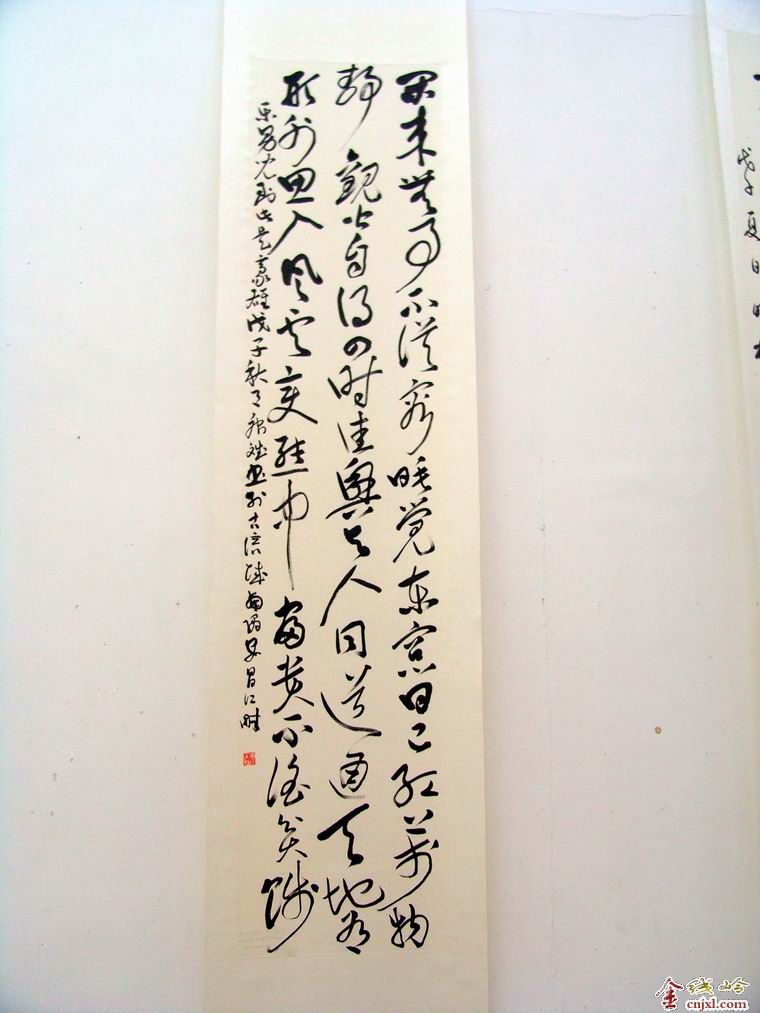 闲来无事不从容睡觉东窗日已红萬物
静觀皆自得四时佳興与人同道通天地有
形外思入风云变態中富贵不淫贫贱
乐男儿到此是豪雄戊子秋月 書於古 昌江畔
戊子夏日
金线岭
cnjxl.com